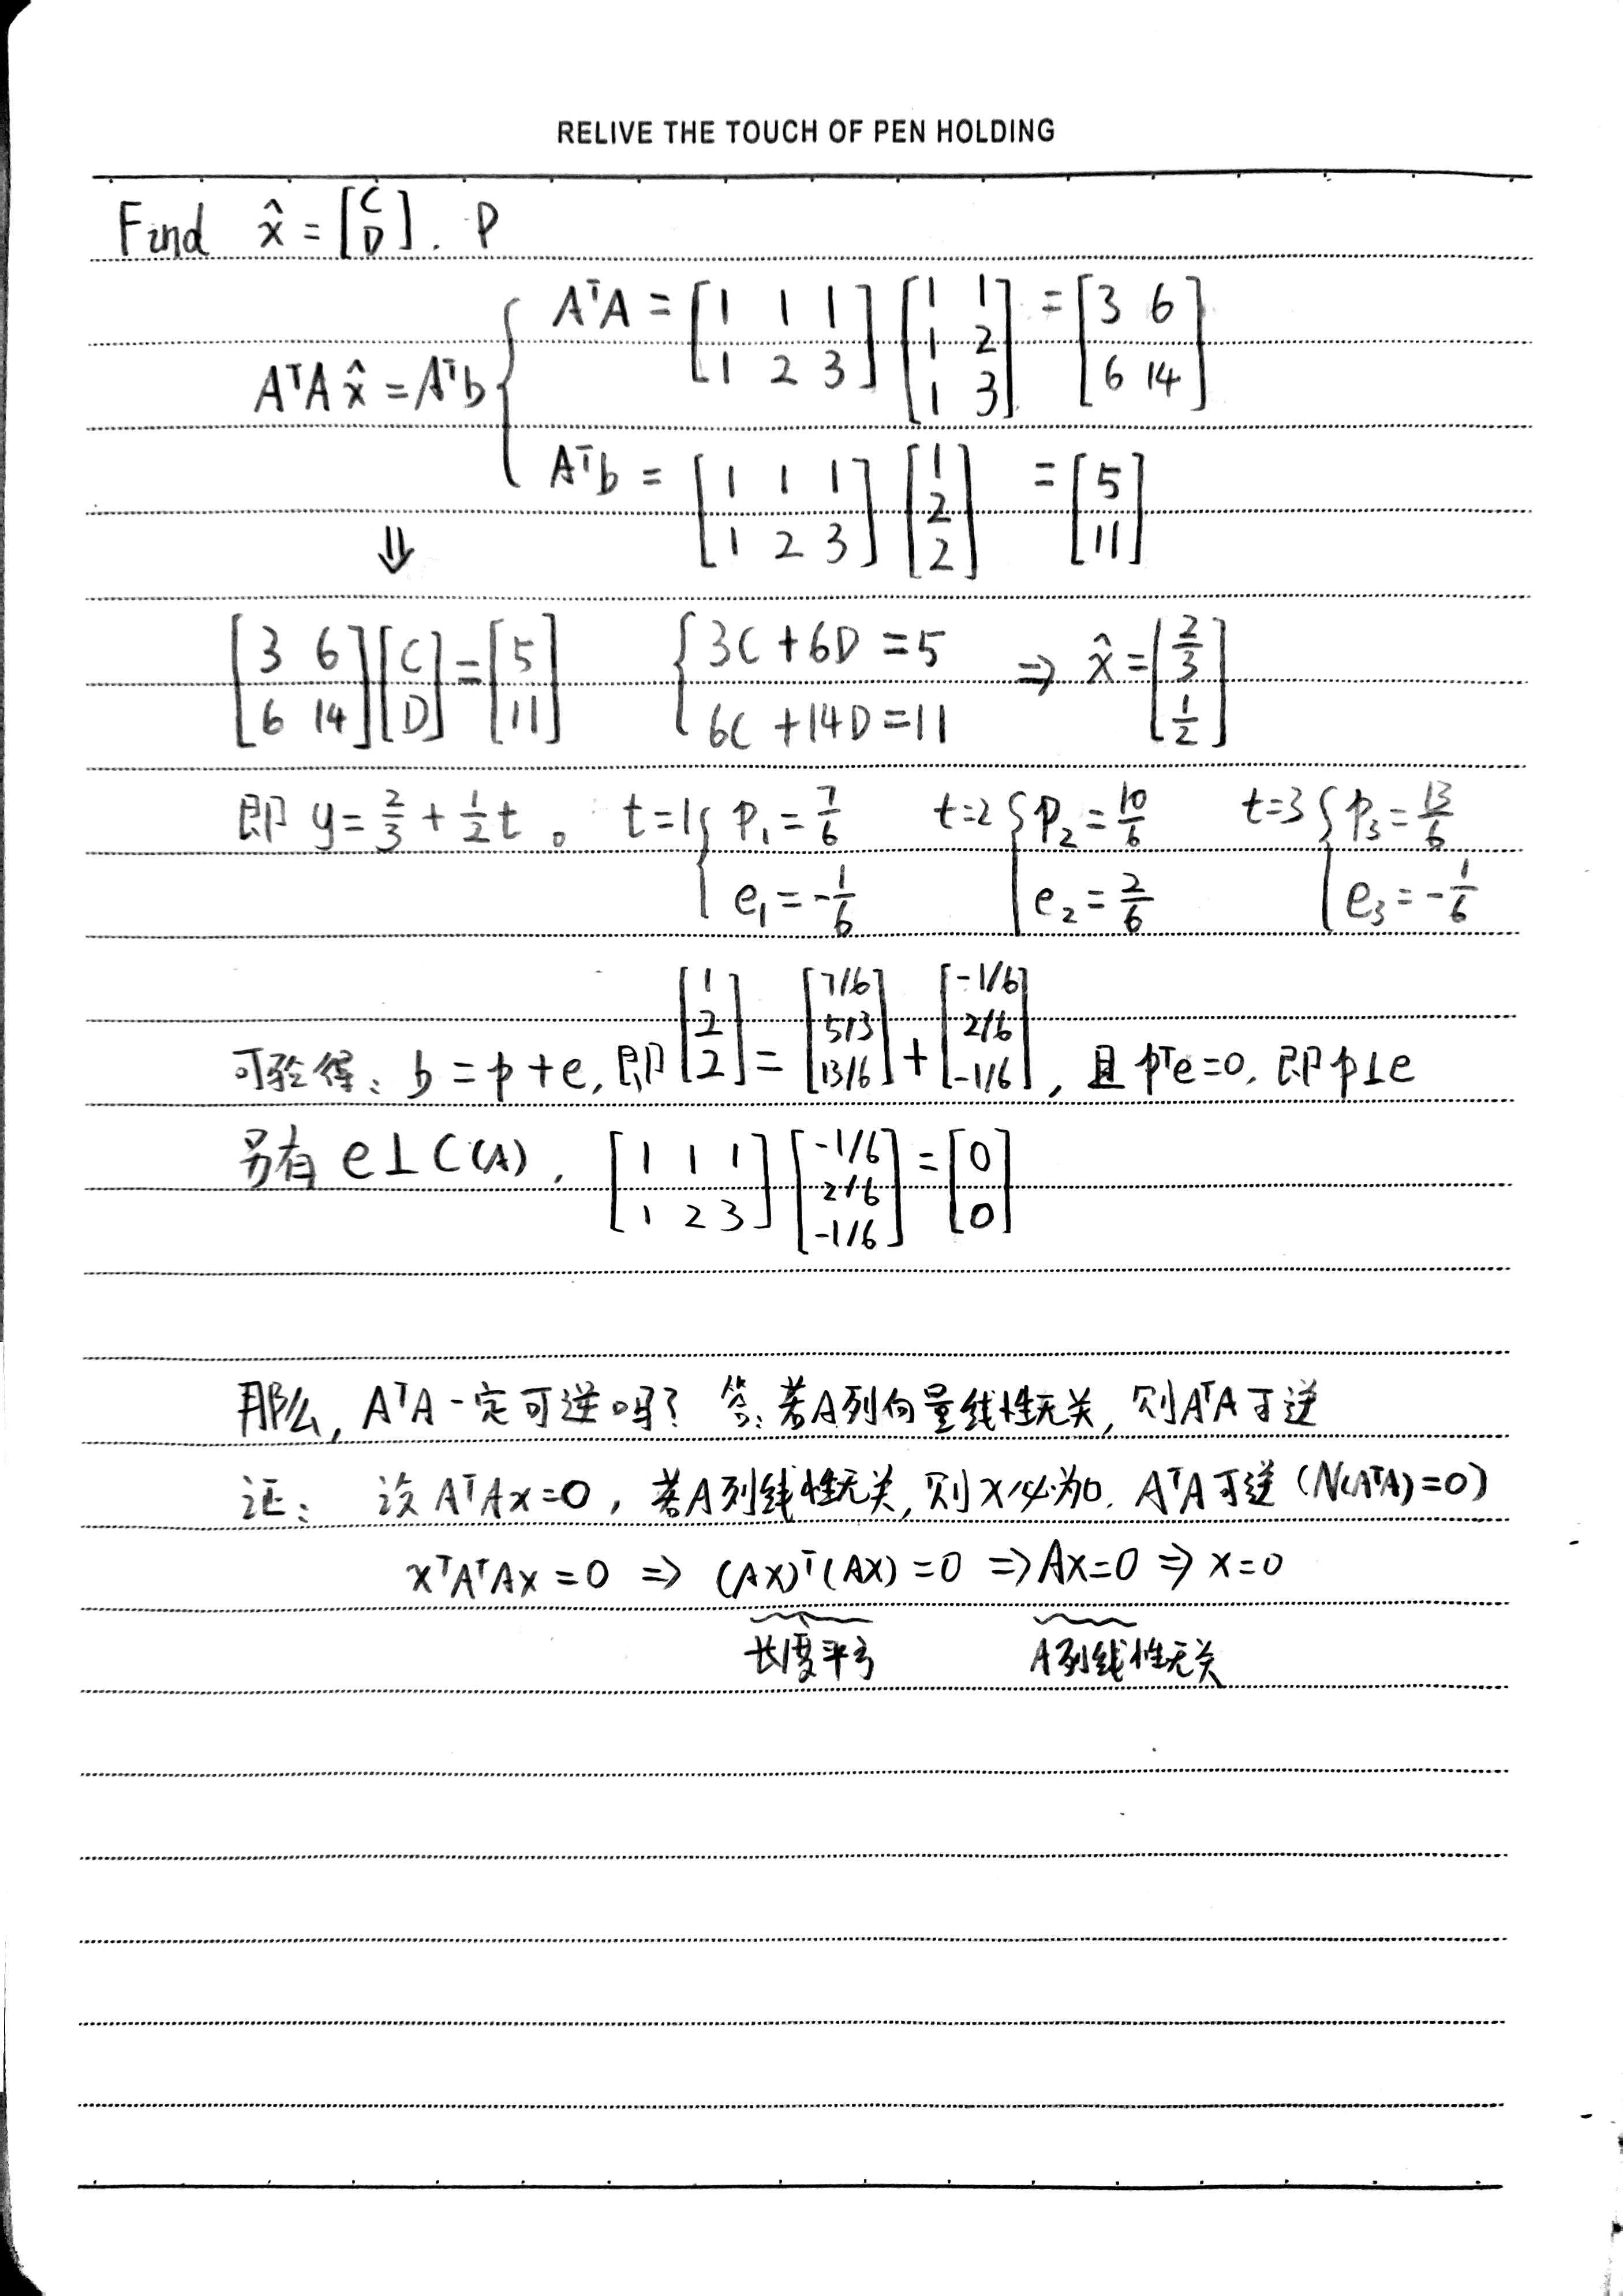 RELIVE THE TOUCH OF PEN HOLDING
Find x̂ = [C D]. P
AᵀAx̂ = Aᵀb { AᵀA = [1 1 1; 1 2 3] [1 1; 1 2; 1 3] = [3 6; 6 14]
Aᵀb = [1 1 1; 1 2 3] [1; 2; 2] = [5; 11]
⇓
[3 6; 6 14] [C; D] = [5; 11] { 3C + 6D = 5 6C + 14D = 11 ⇒ x̂ = [2/3; 1/2]
即 y = 2/3 + 1/2 t 。 t=1 { p₁ = 7/6 e₁ = -1/6 t=2 { p₂ = 10/6 e₂ = 2/6 t=3 { p₃ = 13/6 e₃ = -1/6
可验得: b = p + e, 即 [1; 2; 2] = [7/6; 5/3; 13/6] + [-1/6; 2/6; -1/6], 且 pᵀe = 0, 即 p⊥e
另有 e⊥C(A), [1 1 1; 1 2 3] [-1/6; 2/6; -1/6] = [0; 0]
那么, AᵀA 一定可逆吗? 答: 若A列向量线性无关, 则AᵀA可逆
证: 设 AᵀAx=0, 若A列线性无关, 则x必为0. AᵀA可逆 (N(AᵀA)=0)
xᵀAᵀAx = 0 ⇒ (Ax)ᵀ(Ax) = 0 ⇒ Ax=0 ⇒ x=0
长度平方 A列线性无关